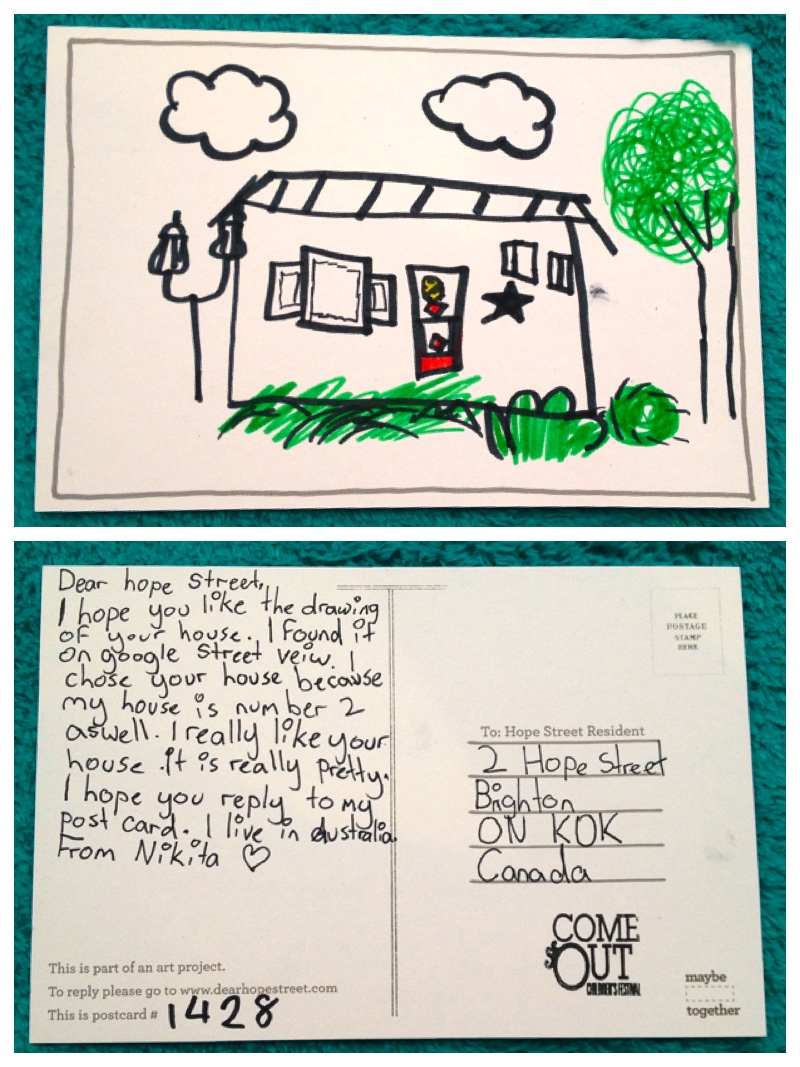 Dear hope Street,
I hope you like the drawing
of your house. I found it
on google Street veiw. I
chose your house because
my house is number 2
aswell. I really like your
house .it is really pretty.
I hope you reply to my
post card. I live in australia
From Nikita ♡
This is part of an art project.
To reply please go to www.dearhopestreet.com
This is postcard # 1428
PLACE
POSTAGE
STAMP
HERE
To: Hope Street Resident
2 Hope Street
Brighton
ON K0K
Canada
COME
OUT
CHILDREN'S FESTIVAL
maybe
together